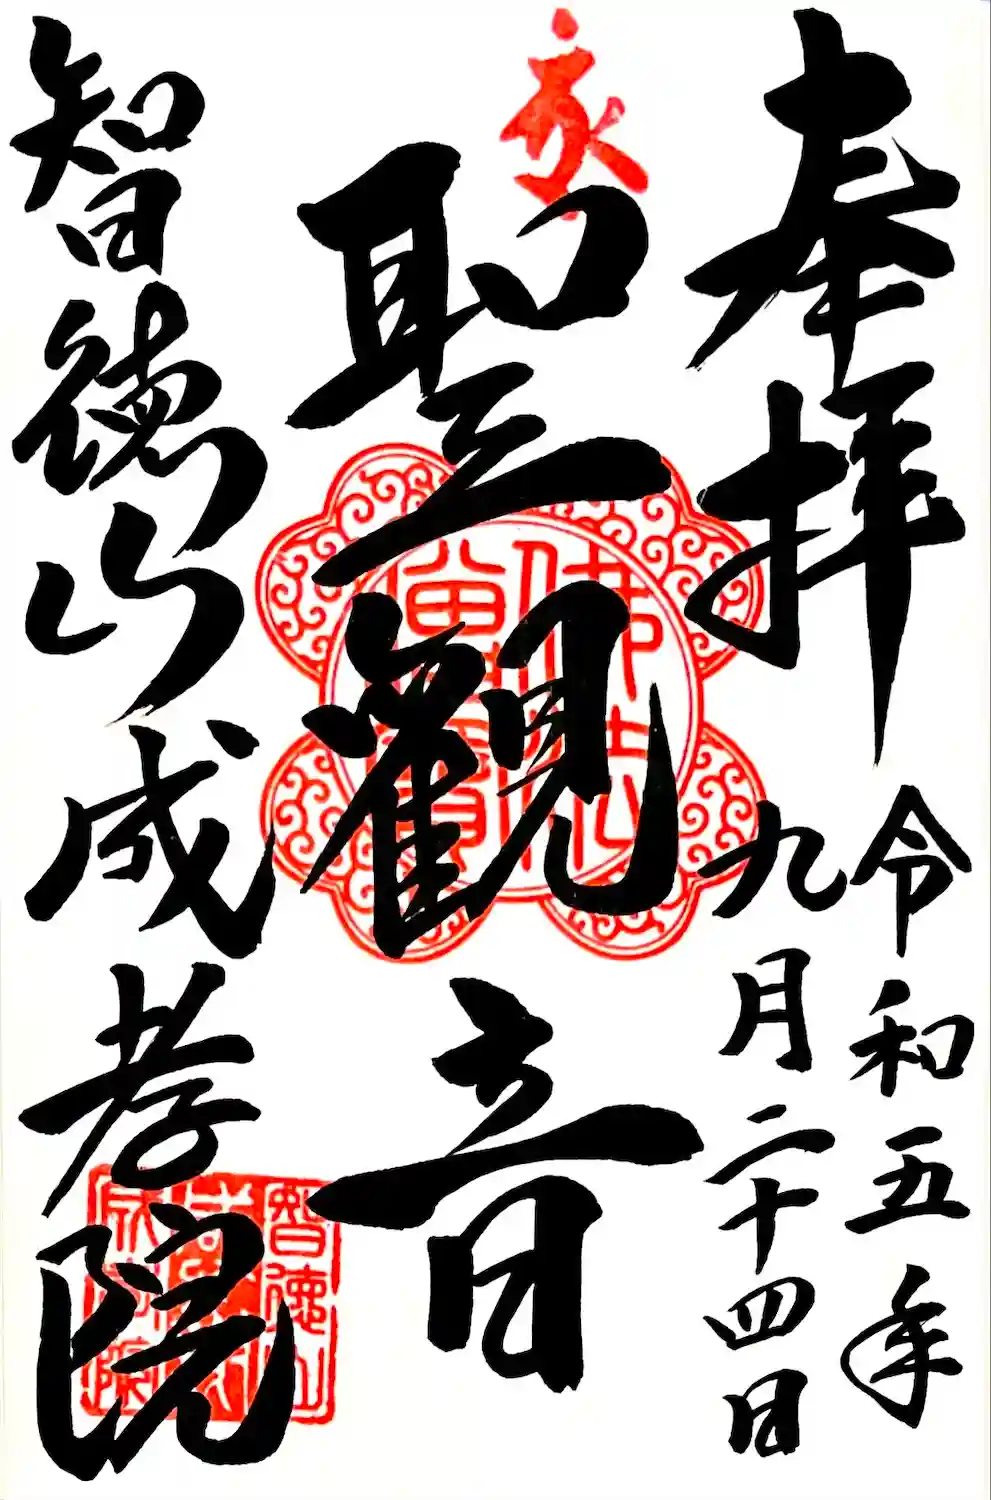 奉拝
令和五年
九月二十四日
聖觀音
智徳山成孝院
佛法
智徳山